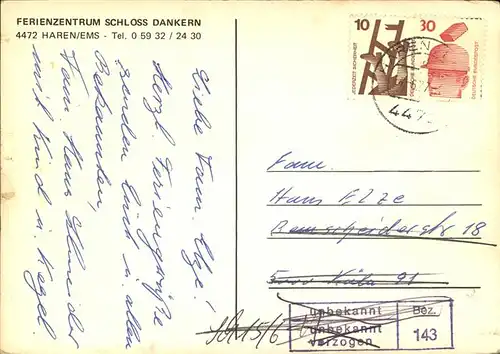 FERIENZENTRUM SCHLOSS DANKERN
4472 HAREN/EMS - Tel. 0 59 32 / 24 30
Liebe Fam. Elze!
Herzl. Feriengrüße
senden Euch u. allen
Bekannten,
Fam. Hans Schneider
mit Kind u. Kegel
10
JEDERZEIT SICHERHEIT
30
DEUTSCHE BUNDESPOST
447
Fam.
Hans Elze
Remscheiderstr 18
5000 Köln 91
unbekannt
unbekannt
verzogen
Bez.
143